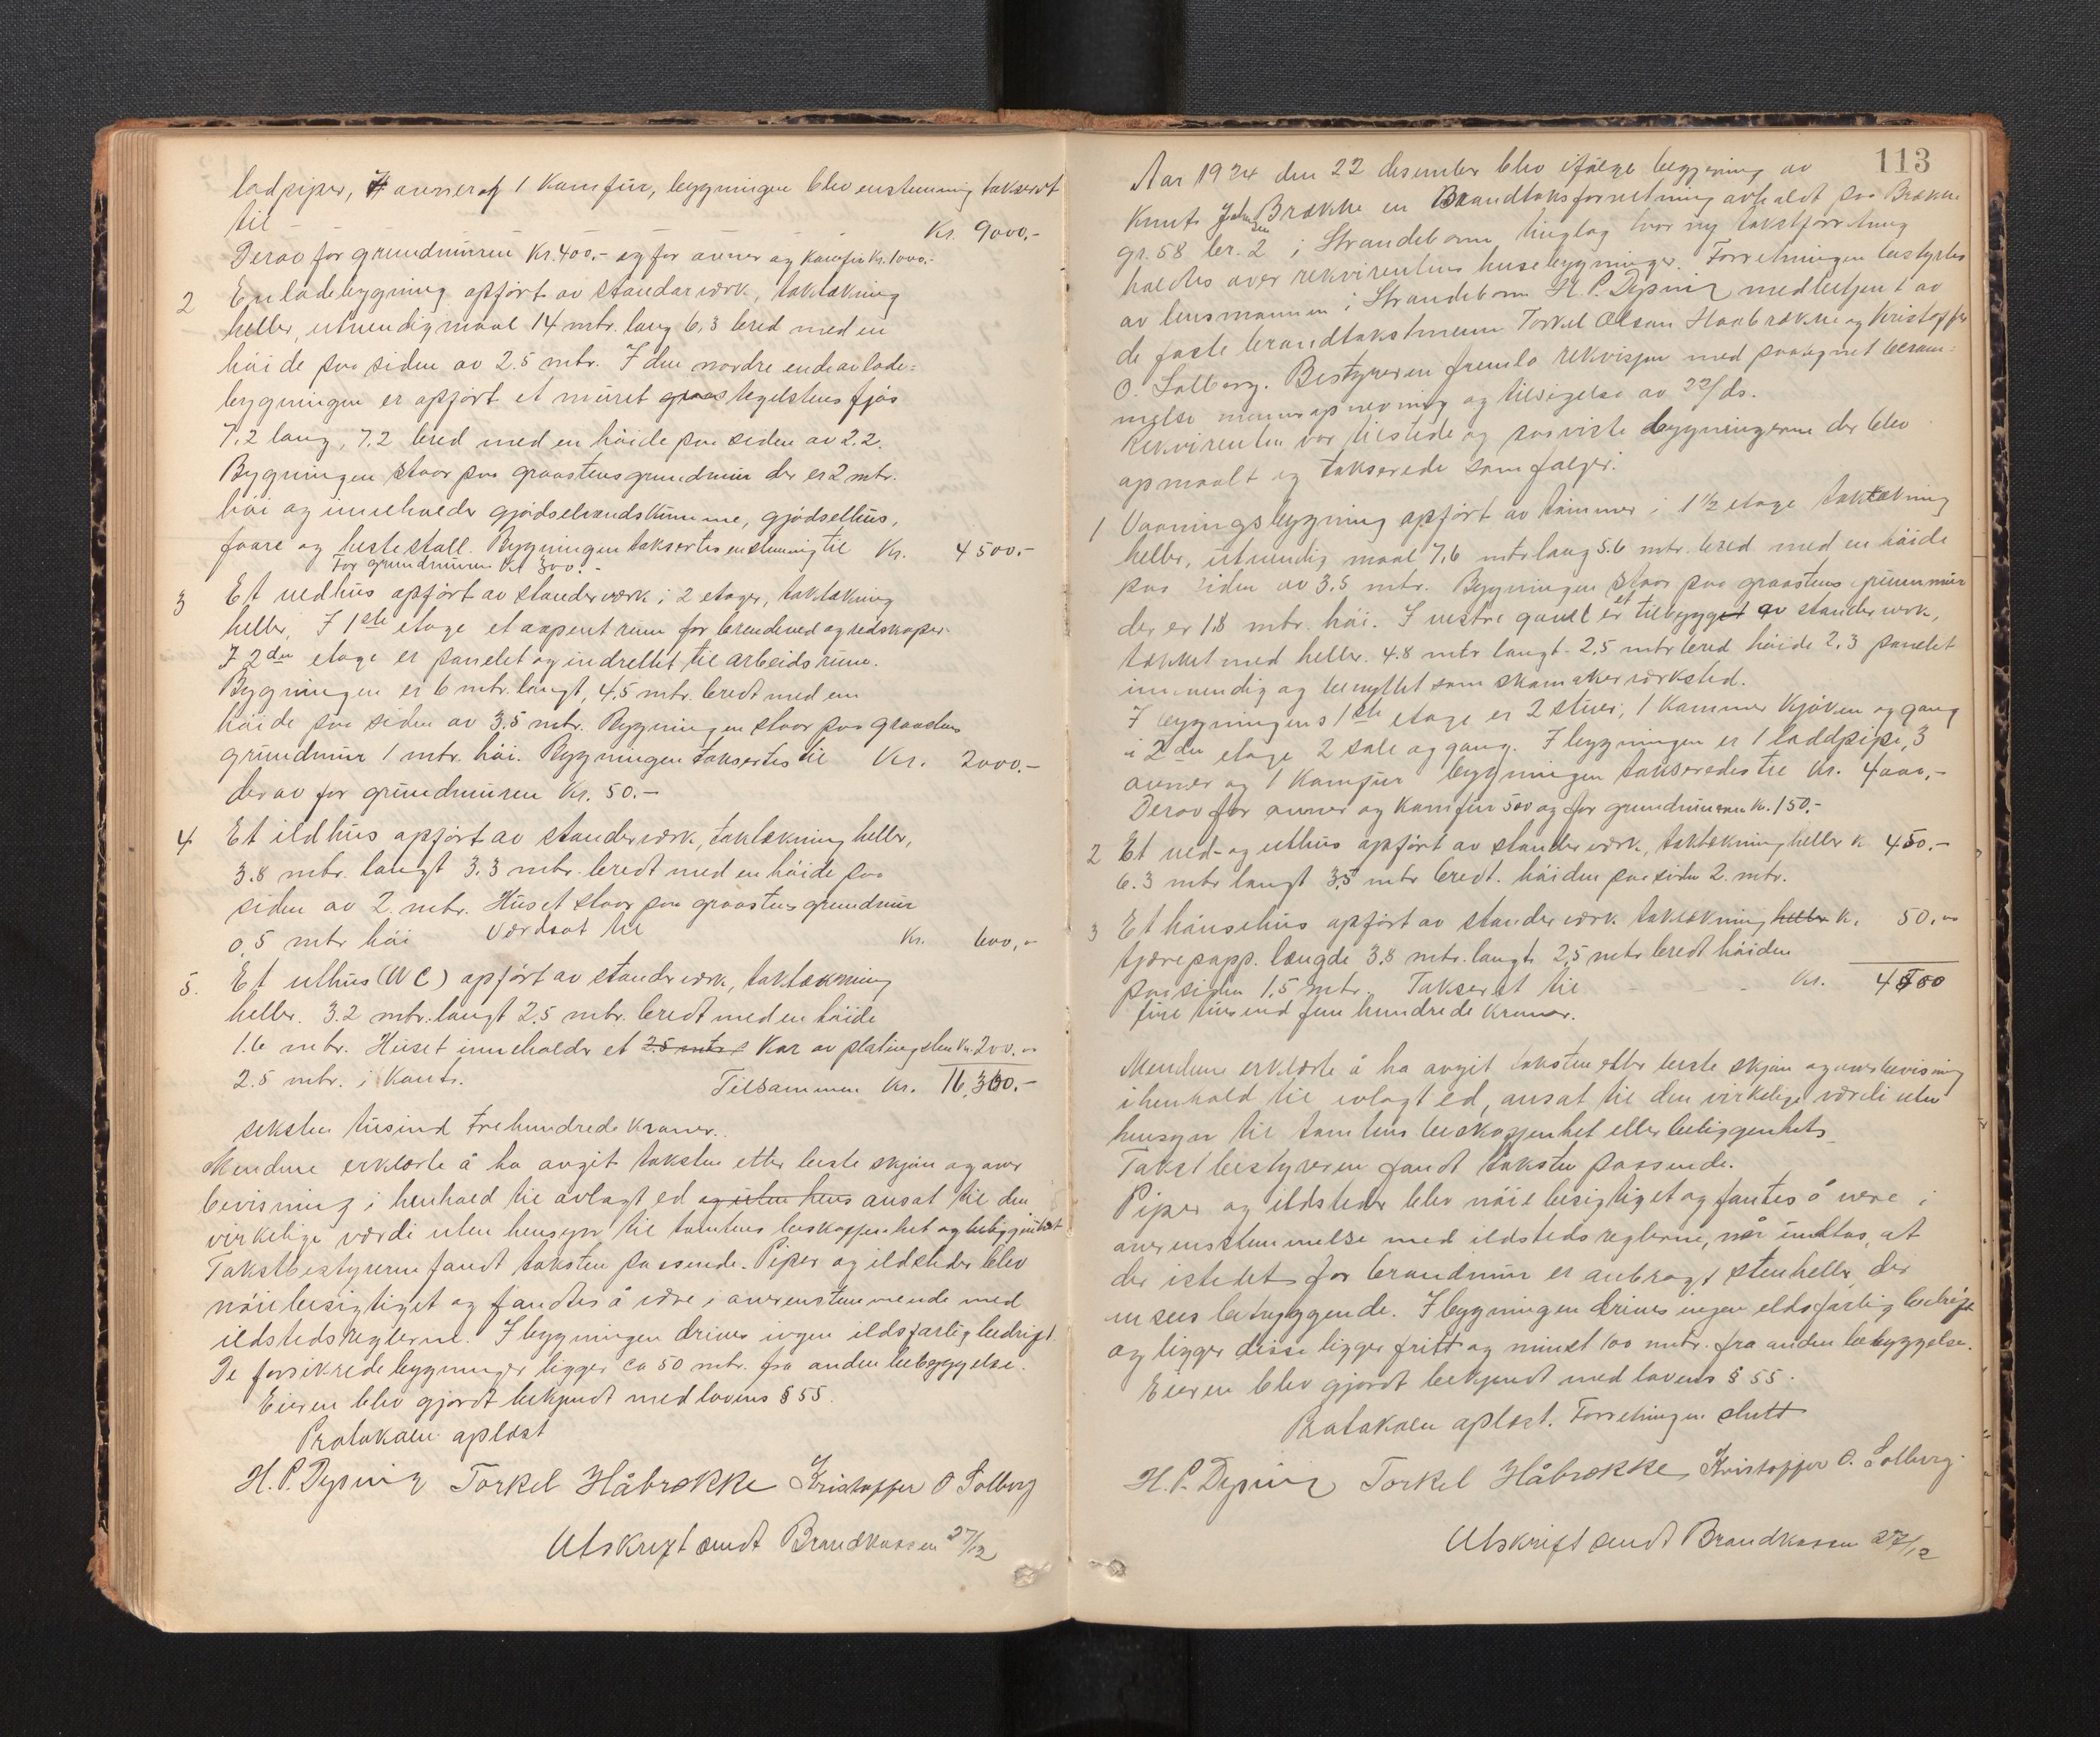 ladpiper, 4 avner og 1 Kamfür, bygningen blev enstemmig taksert
til Kr. 9000.-
Derav for grundmüren Kr. 400.- og for avner og Kamfür Kr. 1000.-
2 En ladebygning opført av standarværk, taktækning
heller, utvendig maal 14 mtr. lang 6,3 bred med en
høide paa siden av 2.5 mtr. I den nordre ende av lade=
bygningen er opført et müret graas tegelstens fjøs
7.2 lang, 7.2 bred med en høide paa siden av 2.2.
Bygningen staar paa graastensgrundmür der er 2 mtr.
høi og inneholder gjødselvandskümme, gjødselhüs,
faare og hestestall. Bygningen taksertes enstemmig til Kr. 4500.-
For grundmüren Kr 300.-
3 Et vedhüs opført av standerværk i 2 etager, taktækning
heller, I 1ste etage et aapent rüm for brændeved og redskaper.
I 2den etage er panelet og indrettet til arbeidsrüm.
Bygningen er 6 mtr. langt, 4.5 mtr. bredt med en
høide paa siden av 3,5 mtr. Bygningen staar paa graastens
grundmür 1 mtr. høi. Bygningen taksertes til Kr. 2000.-
derav for gründmüren Kr. 50.-
4 Et ildhüs opført av standerværk, taktækning heller,
3.8 mtr. langt 3.3 mtr. bredt med en høide paa
siden av 2. mtr. Hüset staar paa graastens grundmür
0,5 mtr høi Værdsat til Kr. 600,-
5. Et uthüs (WC) opført av standerværk, taktækning
heller. 3.2 mtr. langt 2.5 mtr. bredt med en høide
1.6 mtr. Hüset inneholder et 2.5 mtr Kar av Kr. 200.-
2.5 mtr. i Kant. Tilsammen Kr. 16,300.-
seksten tüsind trehundrede Kroner.
Mendene erklærte å ha avgit taksten etter beste skjøn og over
bevisning i henhold til avlagt ed og uten hens ansat til den
virkelige værdi uten hensyn til tomtens beskaffenhet og beliggenhet
Takstbestyreren fandt taksten passende. Piper og ildsteder blev
nøie besigtiget og fandtes å være i overenstemmende med
ildstedsreglerne. I bygningen drives ingen ildsfarlig bedrift.
De forsikrede bygninger ligger ca 50 mtr. fra anden bebyggelse.
Eieren blev gjordt bekjendt med lovens § 55.
Protokollen oplæst
H. P. Dypvik Torkel Håbrække Kristoffer O Solberg
Utskrift sendt Brandkassen 27/12
113
Aar 1924 den 22 desember blev ifølge begjæring av
Knut Johnsen Brække en Brandtaksforretning avholdt paa Brække
gr. 58 br. 2 i Strandeborm tinglag hvor ny takstforretning
holdtes over rekvirentens husebygninger. Forretningen bestyrtes
av lensmannen i Strandeborm H. P. Dypvik med betjent av
de faste brandtakstmenn Torkel Olsen Haabrække og Kristoffer
O. Solberg. Bestyreren fremla rekvisjon med paategnet beram=
melse mannsopnevning og tilsigelse av 22/ds.
Rekvirenten var tilstede og paaviste bygningerne der blev
opmaalt og takserede som følger:
1 Vaaningsbygning opført av tømmer i 1½ etage taktækning
heller, utvendig maal 7,6 mtr lang 5.6 mtr. bred med en høide
paa siden av 3.5 mtr. Bygningen staar paa graastens grunnmür
der er 1.8 mtr. høi. I vestre gavel er et tilbygget av standerværk,
tækket med heller. 4.8 mtr langt - 2.5 mtr bred høide 2.3 panelet
innvendig og benyttet som skomakerværksted.
I bygningens 1ste etage er 2 stuer, 1 Kammer Kjøken og gang
i 2den etage 2 sale og gang. I bygningen er 1 laddpipe, 3
avner og 1 Kamfür bygningen takseredes til Kr. 4000,-
Derav for avner og Kamfür 500 og for grundmüren Kr. 150.-
2 Et ved- og uthüs opført av standerværk, taktækning heller K 450.-
6.3 mtr langt 3,5 mtr bredt. høiden paa siden 2. mtr.
3 Et hønsehüs opført av standerværk taktækning heller K. 50.-
tjærepapp. længde 3.8 mtr. langt 2,5 mtr bredt høiden
paa siden 1.5 mtr. Taksert til Kr. 4500
fire tüsend fem hundrede Kroner.
Mendene erklærte å ha avgit taksten etter beste skjøn og overbevisning
i henhold til avlagt ed, ansat til den virkelige værdi uten
hensyn til tomtens beskaffenhet eller beliggenhet.
Takstbestyreren fandt taksten passende.
Piper og ildsteder blev nøie besigtiget og fantes å være i
overenstemmelse med ildsteds reglerne, når undtas, at
der istedet for brandmür er anbragt stenheller der
ansees betryggende. I bygningen drives ingen eldsfarlig bedrift
og ligger disse ligger fritt og minst 100 mtr. fra anden bebyggelse.
Eieren blev gjordt bekjendt med lovens § 55.
Protokollen oplæst. Forretningen slutt
H. P. Dypvik Torkel Håbrække, Kristoffer O. Solberg.
Utskrift sendt Brandkassen 27/12